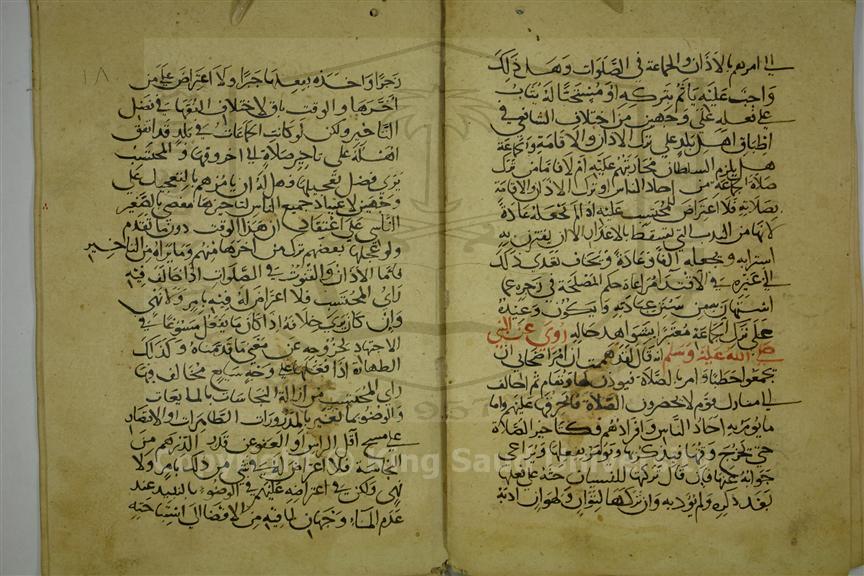 الى امرهم بالاذان والجماعة في الصلوات وهل ذلك
واجب عليه ياثم بتركه او مستحبا له يثاب
على فعله على وجهين من اختلاف الشافعي في
اطباق اهل بلد على ترك الاذان والاقامة والجماعة
هل يلزم السلطان محاربتهم عليه ام لا فاما من ترك
صلاة الجماعة من احاد الناس او ترك الاذان والاقامة
بصلاته فلا اعتراض للمحتسب عليه اذا لم يجعله عادة
لانها من الندب التي تسقط بالاعذار الا ان يقترن به
استرابه و يجعله الفا وعادة ويخاف تعدي ذلك
الى غيره في الاقتداء به مراعاة حكم المصلحة في زجره عن
استهان به من سنن عباداته ويكون وعيده
على ترك الجماعة معتبرا بشواهد حاله روي عن النبي
صلى الله عليه وسلم انه قال لقد هممت ان امر اصحابي ان
يجمعوا حطبا وامر بالصلاة فيوذن لها وتقام ثم اخالف
الى منازل قوم لا يحضرون الصلاة فاحرقها عليهم واما
ما يومر به احاد الناس وافرادهم فكتاخير الصلاة
حتى يخرج وقتها فيذكر بها ويومر بفعلها ويراعي
جوابه عنها فان قال تركتها للنسيان حثه على فعلها
بعد ذكره ولم يؤدبه وان تركها لتوان ولهوان ادبه
١٨
زجرا واخذه بفعلها جبرا ولا اعتراض على من
اخرها والوقت باق لاختلاف الفقها في فضل
التاخير ولكن لو كانت الجماعات في بلد قد اتفق
اهله على تاخير صلاة الى اخر وقتها والمحتسب
يرى فضل تعجيلها فهل له ان يامرهم بالتعجيل على
وجهين لان اعتياد جميع الناس لتاخيرها مفض بالصغير
الناشي على اعتقاد ان هذا الوقت دون ما تقدم
ولو عجلها بعضهم ترك من اخرها منهم وما يراه من التاخير
فاما الاذان والقنوت في الصلوات اذا خالف فيه
راى المحتسب فلا اعتراض له فيه بامر ولا نهي
وان كان يرى خلافه اذا كان ما يفعل مسوغا في
الاجتهاد لخروجه عن معنى ما قدمناه وكذلك
الطهارة اذا فعلها على وجه سايغ مخالف فيها
راي المحتسب من ازالة النجاسات بالمايعات
والوضوء بما تغير بالمذرورات الطاهرات او الاقتصار
على مسح اقل الراس او العفو عن قدر الدرهم من
النجاسة فلا اعتراض له في شي من ذلك بامر ولا
نهي ولكن في اعتراضه عليهم في الوضوء بالنبيذ عند
عدم الماء وجهان لما فيه من الافضا الى استباحته